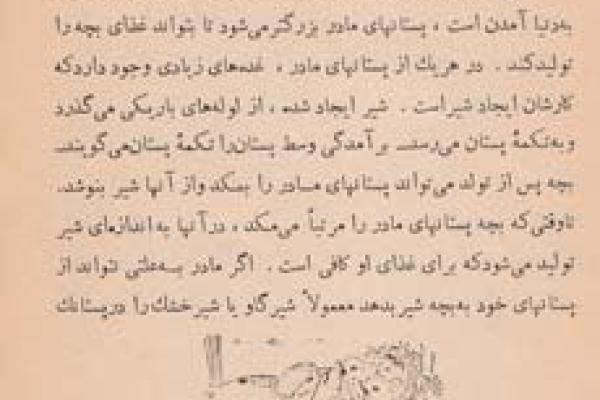 به‌دنیا آمدن است ، پستانهای مادر بزرگتر می‌شود تا بتواند غذای بچه را
تولیدکند . در هریك از پستانهای مادر ، غده‌های زیادی وجود داردکه
کارشان ایجاد شیراست . شیر ایجاد شده ، از لوله‌های باریکی می‌گذرد
و به‌تکمهٔ پستان می‌رسد. برآمدگی وسط پستان‌را تکمهٔ پستان‌می‌گویند.
بچه پس از تولد می‌تواند پستانهای مادر را بمکد واز آنها شیر بنوشد.
تاوقتی‌که بچه پستانهای مادر را مرتباً می‌مکد ، درآنها به‌اندازه‌ای شیر
تولید می‌شودکه برای غذای او کافی است . اگر مادر به‌علتی نتواند از
پستانهای خود به‌بچه شیر بدهد معمولاً شیرگاو یا شیرخشك‌را درپستانك